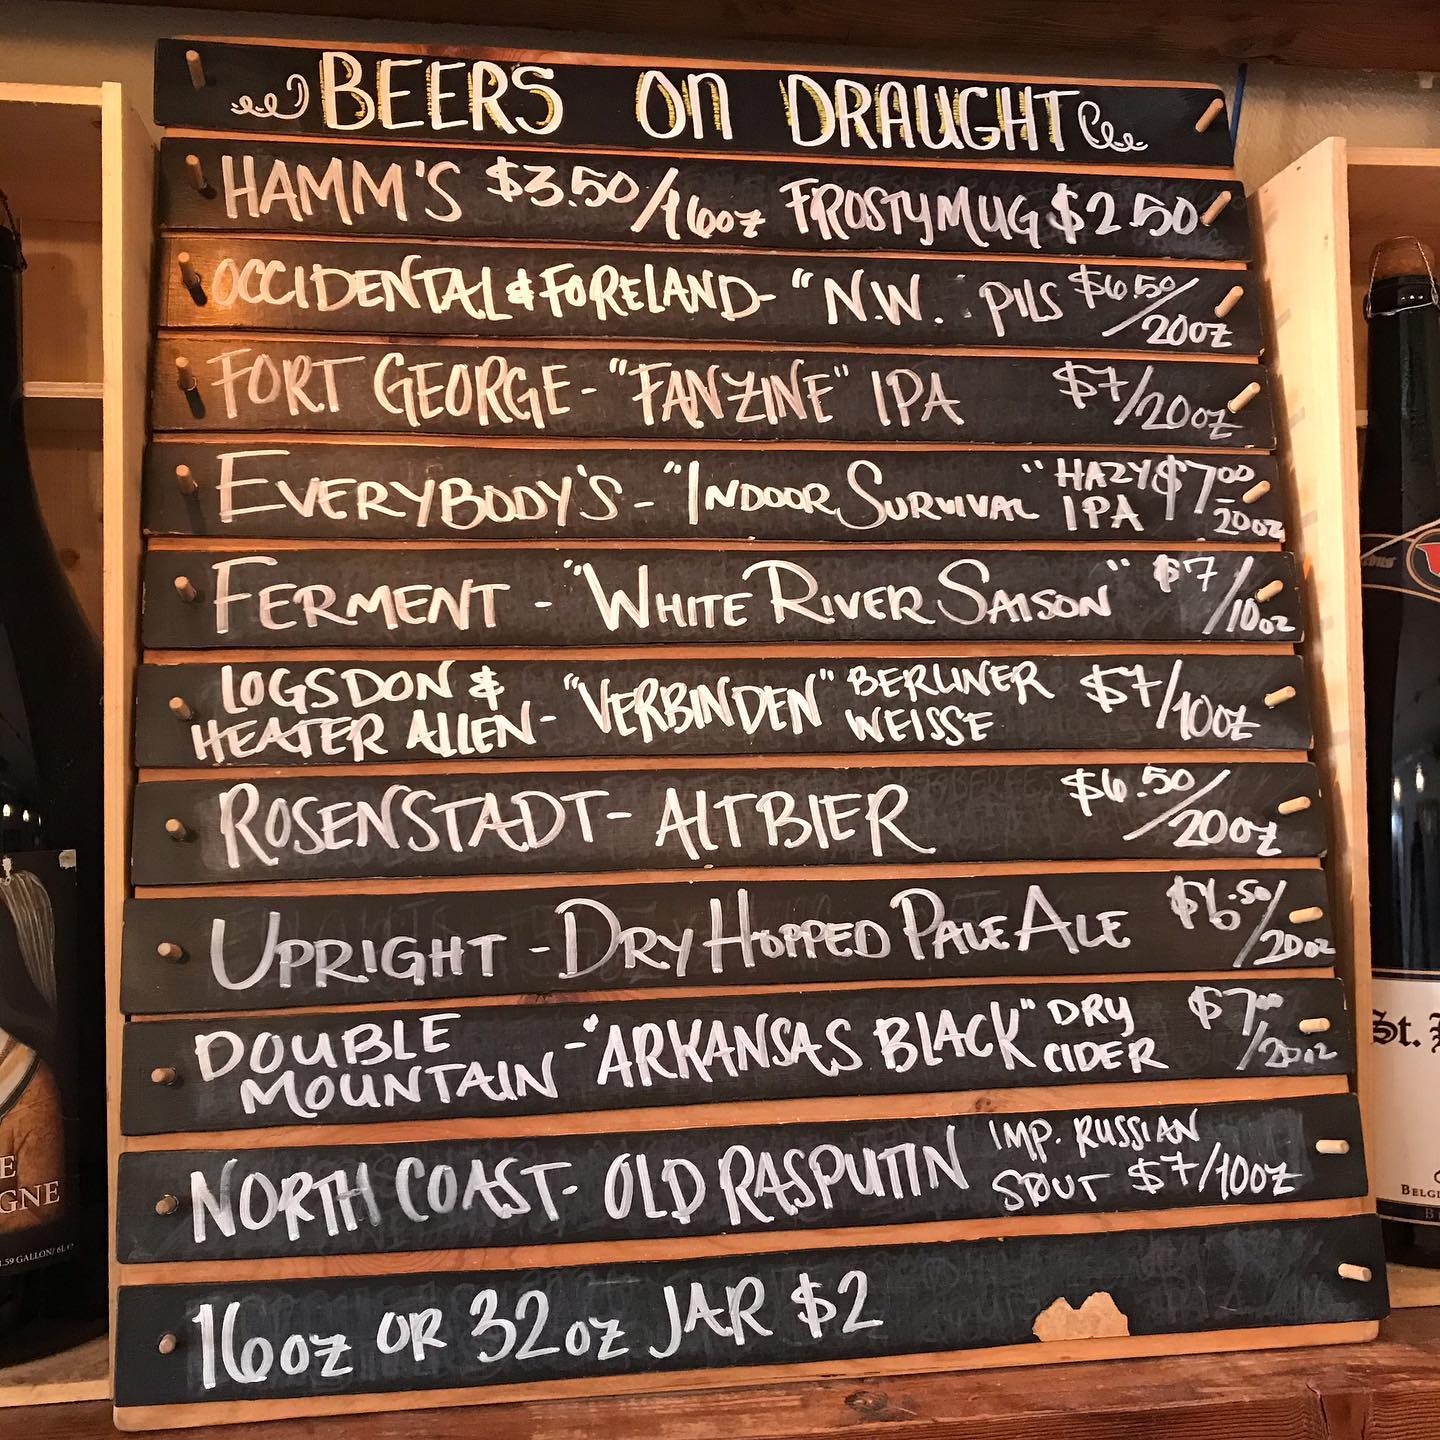 BEERS ON DRAUGHT
HAMM'S $3.50/16oz FROSTY MUG $2.50
OCCIDENTAL & FORELAND - "N.W. PILS $6.50/20oz
FORT GEORGE - "FANZINE" IPA $7/20oz
EVERYBODY'S - "INDOOR SURVIVAL" HAZY IPA $7.00-20oz
FERMENT - "WHITE RIVER SAISON" $7/10oz
LOGSDON & HEATER ALLEN - "VERBINDEN" BERLINER WEISSE $7/10oz
ROSENSTADT - ALTBIER $6.50/20oz
UPRIGHT - DRY HOPPED PALE ALE $6.50/20oz
DOUBLE MOUNTAIN - "ARKANSAS BLACK" DRY CIDER $7.00/20oz
NORTH COAST - OLD RASPUTIN IMP. RUSSIAN STOUT $7/10oz
16oz OR 32oz JAR $2
St.